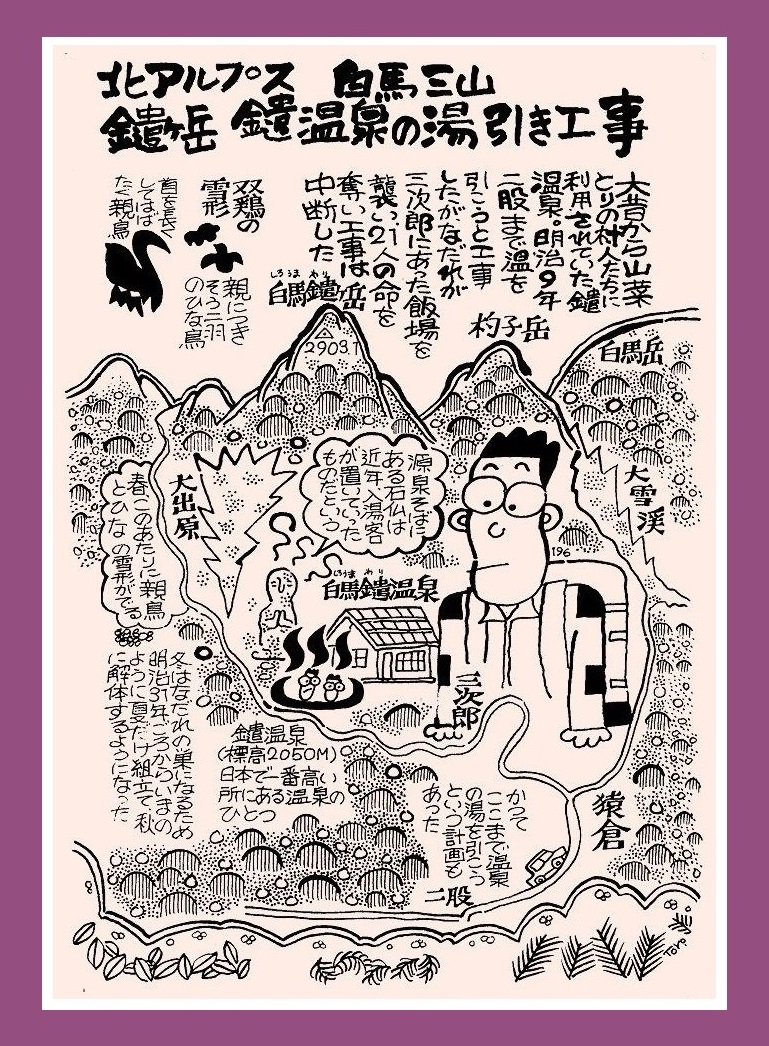 北アルプス 白馬三山
鑓ヶ岳 鑓温泉の湯引き工事
大昔から山菜
とりの村人たちに
利用されていた鑓
温泉。明治9年
二股まで湯を
引こうと工事
したがなだれが
三次郎にあった飯場を
襲い21人の命を
奪い工事は
中断した
双鶏の
雪形
首を長く
してはば
たく親鳥
親につき
そう二羽
のひな鳥
しろうま やり
白馬鑓ヶ岳
2903.1
杓子岳
白馬岳
大雪渓
大出原
源泉そばに
ある石仏は
近年入湯客
が置いていった
ものだという
春このあたりに親鳥
とひなの雪形がでる
196
しろうま やり
白馬鑓温泉
三次郎
冬はなだれの巣になるため
明治31年ころからいまの
ように夏だけ組立て秋
に解体するようになった
鑓温泉
(標高2050M)
日本で一番高い
所にある温泉の
ひとつ
かつて
ここまで温泉
の湯を引こう
という計画も
あった
猿倉
二股